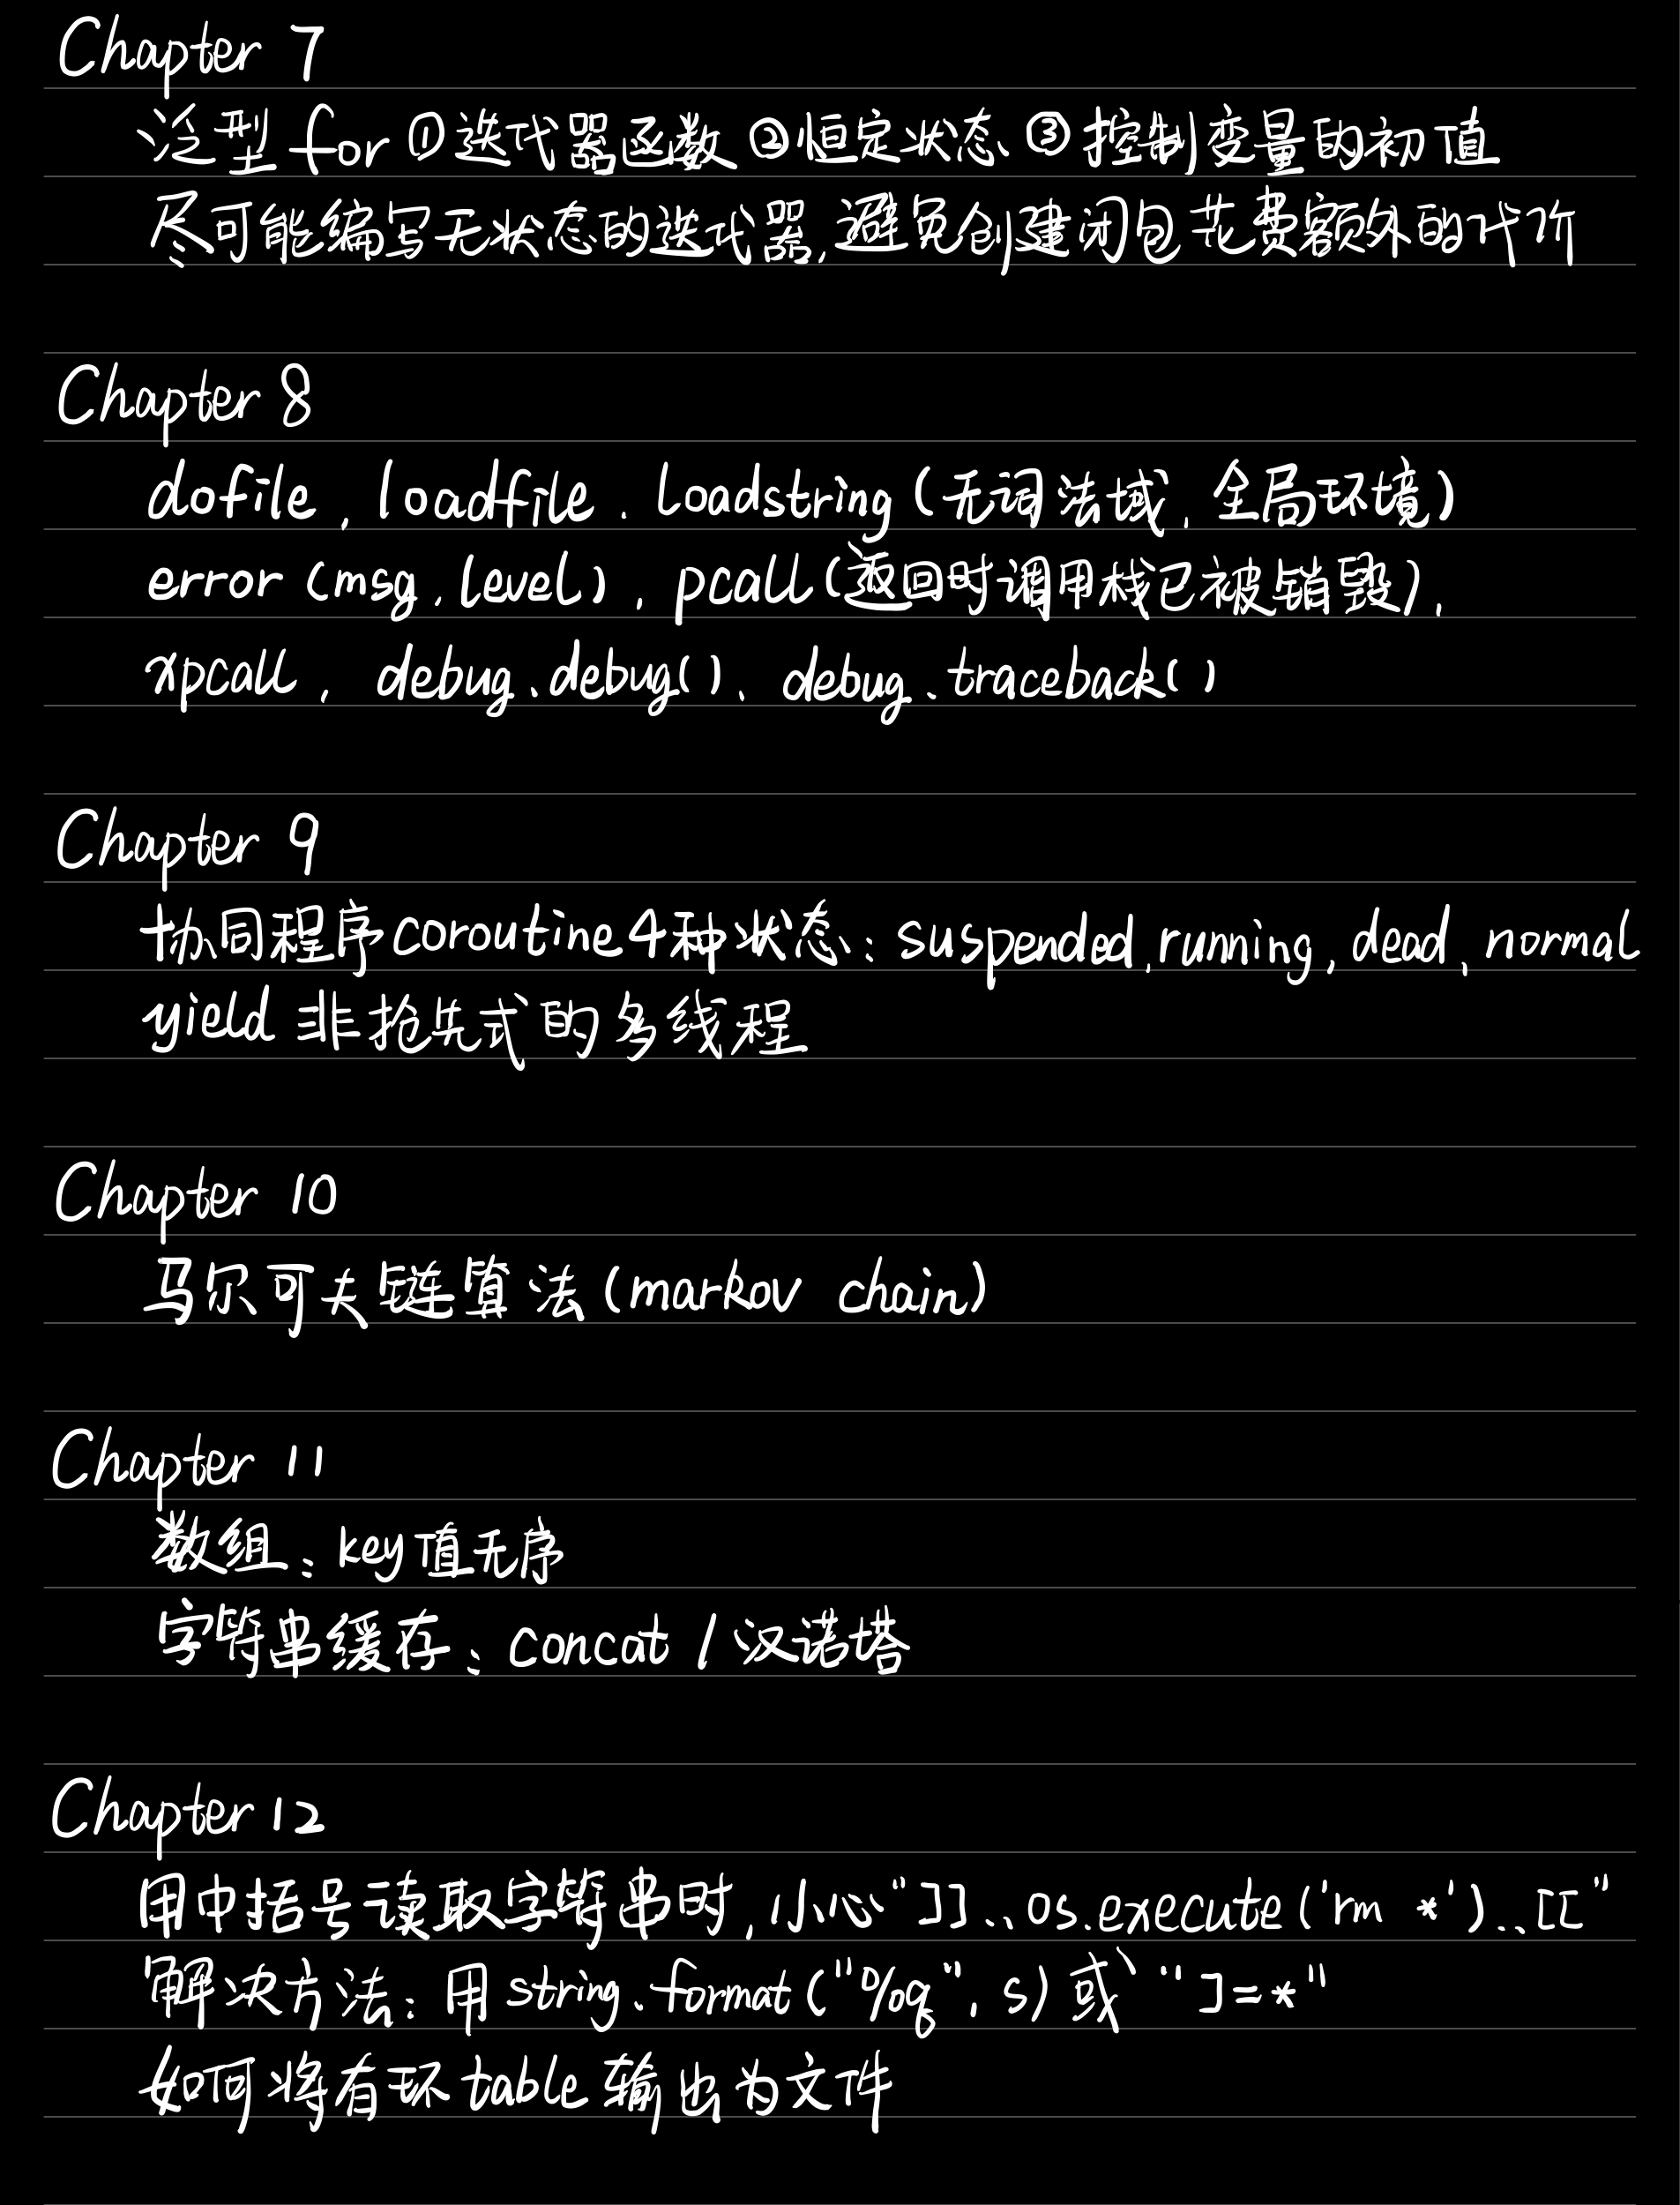 Chapter 7
泛型for ①迭代器函数 ②恒定状态 ③控制变量的初值
尽可能编写无状态的迭代器,避免创建闭包花费额外的代价
Chapter 8
dofile, loadfile, loadstring (无词法域, 全局环境)
error (msg, level), pcall (返回时调用栈已被销毁),
xpcall, debug.debug(), debug.traceback()
Chapter 9
协同程序coroutine 4种状态: suspended, running, dead, normal
yield 非抢先式的多线程
Chapter 10
马尔可夫链算法 (markov chain)
Chapter 11
数组: key值无序
字符串缓存: concat / 汉诺塔
Chapter 12
用中括号读取字符串时, 小心"]]..os.execute('rm *')..[["
解决方法: 用string.format("%q", s) 或 "]=*"
如何将有环table输出为文件